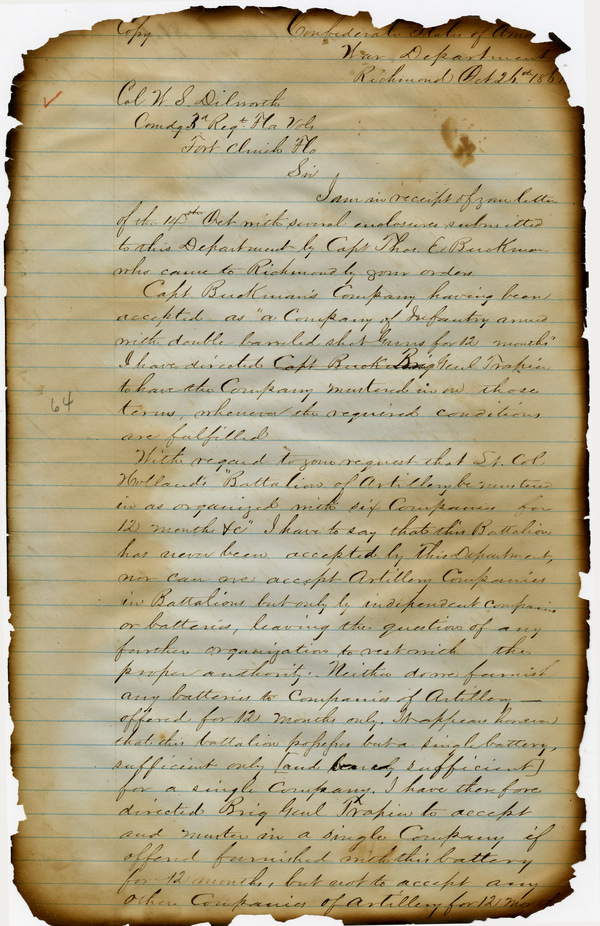 Copy Confederate States of Ame
War Department
Richmond Oct 26th 186
Col W. S. Dilworth
Comdg 3d Regt Fla Vols
Fort Clinch Fla
Sir
I am in receipt of your letter
of the 14th Oct with several enclosures submitted
to this Department by Capt Thos. E. Buckman
who came to Richmond by your orders
Capt Buckman's Company having been
accepted as "a Company of Infantry armed
with double barreled shot Guns for 12 months"
I have directed Capt Buck Brig Genl Trapier
to have the Company mustered in on those
terms, whenever the required conditions
are fulfilled
64
With regard to your request that Lt. Col
Holland's "Battalion of Artillery be mustered
in as organized with six Companies for
12 months &c" I have to say that this Battalion
has never been accepted by this Department,
nor can we accept Artillery Companies
in Battalions but only by independent companies
or batteries, leaving the question of any
further organization to rest with the
proper authority. Neither do we furnish
any batteries to Companies of Artillery—
offered for 12 months only. It appears however
that this battalion possesses but a single battery,
sufficient only [and barely sufficient]
for a single Company. I have therefore
directed Brig Genl Trapier to accept
and muster in a single Company if
offered furnished with this battery
for 12 months, but not to accept any
other Companies of Artillery for 12 Months